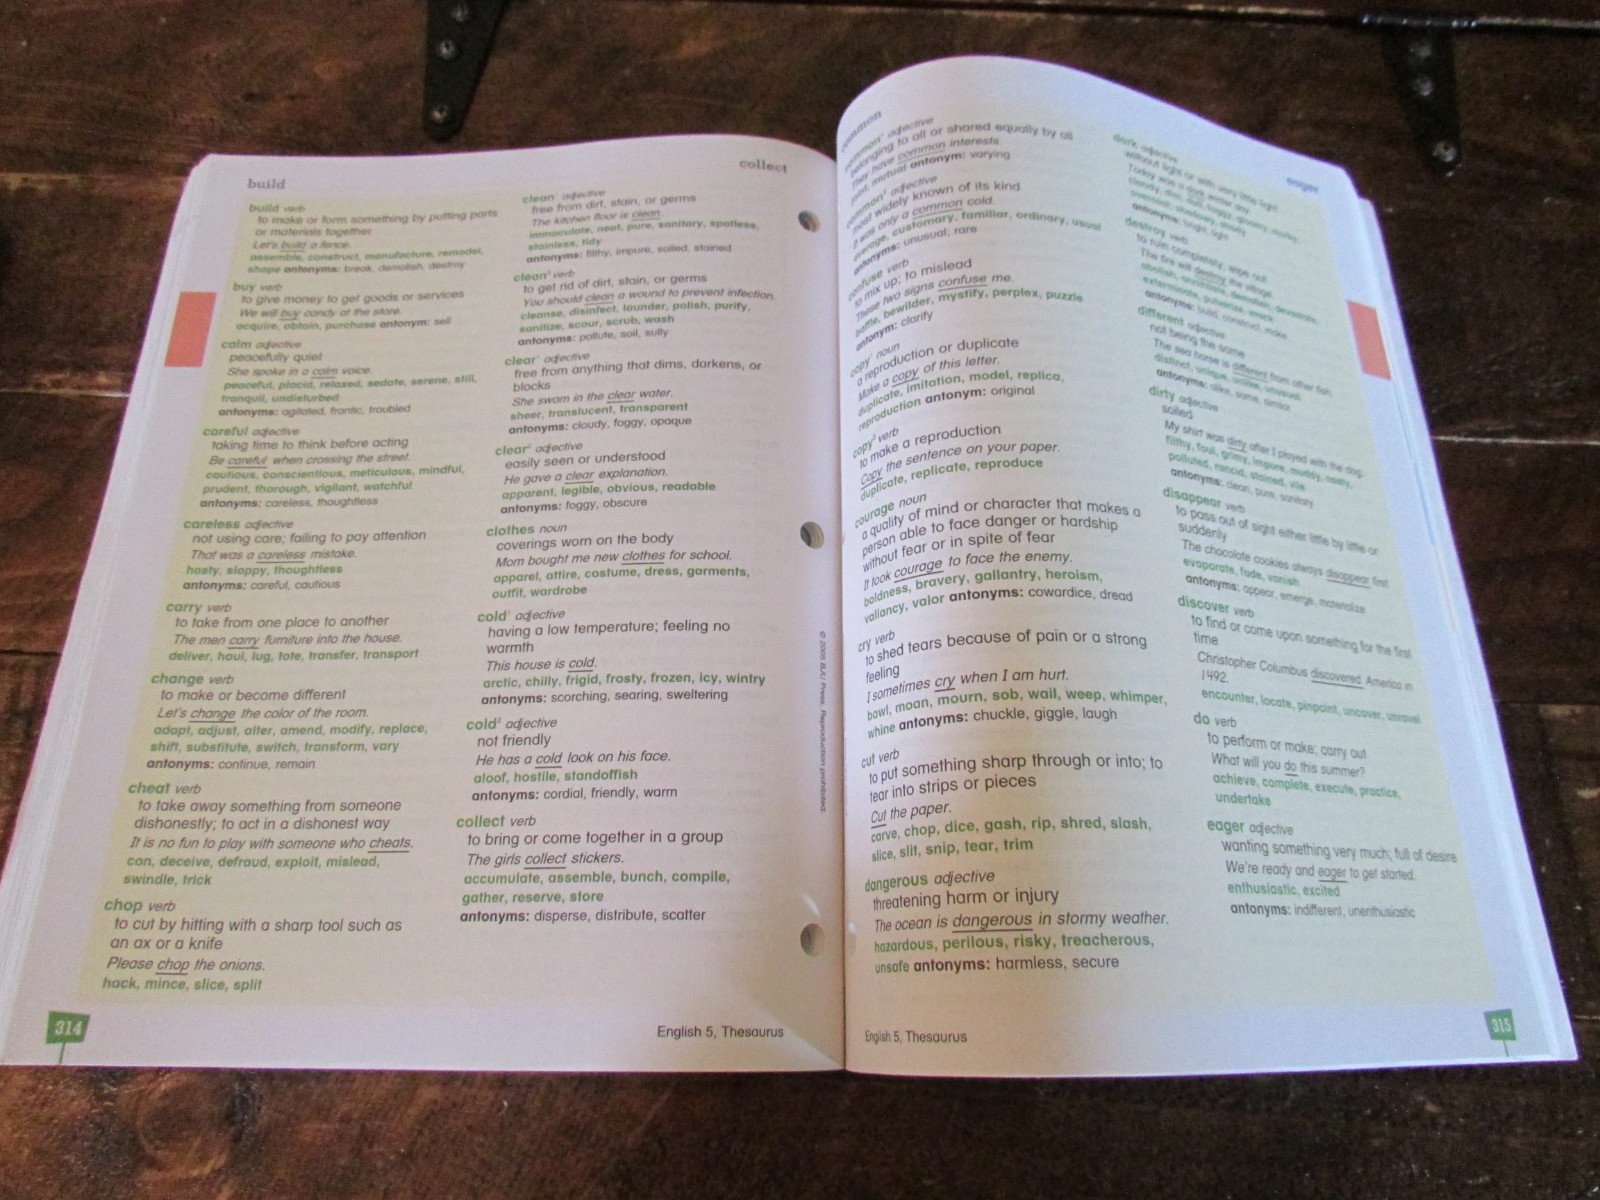 build
collect
build verb
to make or form something by putting parts
or materials together
Let's build a fence.
assemble, construct, manufacture, remodel,
shape antonyms: break, demolish, destroy
buy verb
to give money to get goods or services
We will buy candy at the store.
acquire, obtain, purchase antonym: sell
calm adjective
peacefully quiet
She spoke in a calm voice.
peaceful, placid, relaxed, sedate, serene, still,
tranquil, undisturbed
antonyms: agitated, frantic, troubled
careful adjective
taking time to think before acting
Be careful when crossing the street.
cautious, conscientious, meticulous, mindful,
prudent, thorough, vigilant, watchful
antonyms: careless, thoughtless
careless adjective
not using care; failing to pay attention
That was a careless mistake.
hasty, sloppy, thoughtless
antonyms: careful, cautious
carry verb
to take from one place to another
The men carry furniture into the house.
deliver, haul, lug, tote, transfer, transport
change verb
to make or become different
Let's change the color of the room.
adapt, adjust, alter, amend, modify, replace,
shift, substitute, switch, transform, vary
antonyms: continue, remain
cheat verb
to take away something from someone
dishonestly; to act in a dishonest way
It is no fun to play with someone who cheats.
con, deceive, defraud, exploit, mislead,
swindle, trick
chop verb
to cut by hitting with a sharp tool such as
an ax or a knife
Please chop the onions.
hack, mince, slice, split
clean¹ adjective
free from dirt, stain, or germs
The kitchen floor is clean.
immaculate, neat, pure, sanitary, spotless,
stainless, tidy
antonyms: filthy, impure, soiled, stained
clean² verb
to get rid of dirt, stain, or germs
You should clean a wound to prevent infection.
cleanse, disinfect, launder, polish, purify,
sanitize, scour, scrub, wash
antonyms: pollute, soil, sully
clear¹ adjective
free from anything that dims, darkens, or
blocks
She swam in the clear water.
sheer, translucent, transparent
antonyms: cloudy, foggy, opaque
clear² adjective
easily seen or understood
He gave a clear explanation.
apparent, legible, obvious, readable
antonyms: foggy, obscure
clothes noun
coverings worn on the body
Mom bought me new clothes for school.
apparel, attire, costume, dress, garments,
outfit, wardrobe
cold¹ adjective
having a low temperature; feeling no
warmth
This house is cold.
arctic, chilly, frigid, frosty, frozen, icy, wintry
antonyms: scorching, searing, sweltering
cold² adjective
not friendly
He has a cold look on his face.
aloof, hostile, standoffish
antonyms: cordial, friendly, warm
collect verb
to bring or come together in a group
The girls collect stickers.
accumulate, assemble, bunch, compile,
gather, reserve, store
antonyms: disperse, distribute, scatter
© 2005 BJU Press. Reproduction prohibited.
314
English 5, Thesaurus
common
eager
common¹ adjective
belonging to all or shared equally by all
They have common interests.
joint, mutual antonym: varying
common² adjective
most widely known of its kind
It was only a common cold.
average, customary, familiar, ordinary, usual
antonyms: unusual; rare
confuse verb
to mix up; to mislead
These two signs confuse me.
baffle, bewilder, mystify, perplex, puzzle
antonym: clarify
copy¹ noun
a reproduction or duplicate
Make a copy of this letter.
duplicate, imitation, model, replica,
reproduction antonym: original
copy² verb
to make a reproduction
Copy the sentence on your paper.
duplicate, replicate, reproduce
courage noun
a quality of mind or character that makes a
person able to face danger or hardship
without fear or in spite of fear
It took courage to face the enemy.
boldness, bravery, gallantry, heroism,
valiancy, valor antonyms: cowardice, dread
cry verb
to shed tears because of pain or a strong
feeling
I sometimes cry when I am hurt.
bawl, moan, mourn, sob, wail, weep, whimper,
whine antonyms: chuckle, giggle, laugh
cut verb
to put something sharp through or into; to
tear into strips or pieces
Cut the paper.
carve, chop, dice, gash, rip, shred, slash,
slice, slit, snip, tear, trim
dangerous adjective
threatening harm or injury
The ocean is dangerous in stormy weather.
hazardous, perilous, risky, treacherous,
unsafe antonyms: harmless, secure
dark adjective
without light or with very little light
Today was a dark winter day.
cloudy, dim, dull, foggy, gloomy, murky,
overcast, shadowy, shady
antonyms: bright, light
destroy verb
to ruin completely; wipe out
The fire will destroy the village.
abolish, annihilate, demolish, devastate,
exterminate, pulverize, wreck
antonyms: build, construct, make
different adjective
not being the same
The sea horse is different from other fish.
distinct, unique, unlike, unusual
antonyms: alike, same, similar
dirty adjective
soiled
My shirt was dirty after I played with the dog.
filthy, foul, grimy, impure, muddy, nasty,
polluted, rancid, stained, vile
antonyms: clean, pure, sanitary
disappear verb
to pass out of sight either little by little or
suddenly
The chocolate cookies always disappear first.
evaporate, fade, vanish
antonyms: appear, emerge, materialize
discover verb
to find or come upon something for the first
time
Christopher Columbus discovered America in
1492.
encounter, locate, pinpoint, uncover, unravel
do verb
to perform or make; carry out
What will you do this summer?
achieve, complete, execute, practice,
undertake
eager adjective
wanting something very much; full of desire
We're ready and eager to get started.
enthusiastic, excited
antonyms: indifferent, unenthusiastic
English 5, Thesaurus
315